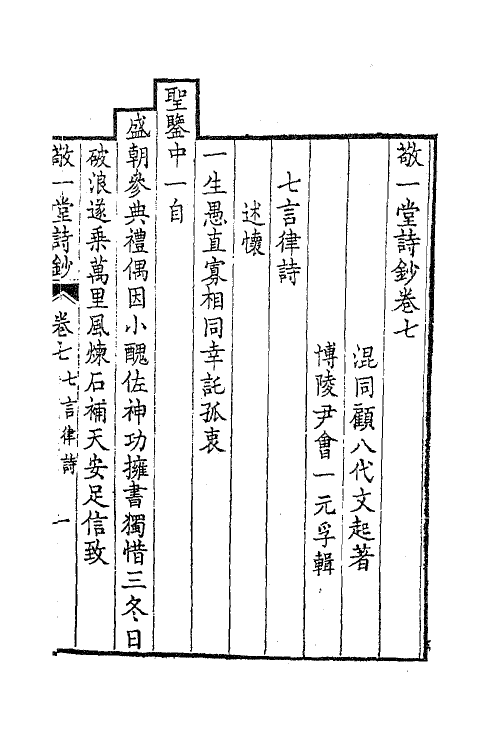 敬一堂詩鈔卷七
混同顧八代文起著
博陵尹會一元孚輯
七言律詩
述懷
一生愚直寡相同幸託孤衷
聖鑒中一自
盛朝參典禮偶因小醜佐神功擁書獨惜三冬日
破浪遂乘萬里風煉石補天安足信致
敬一堂詩鈔 卷七 七言律詩 一